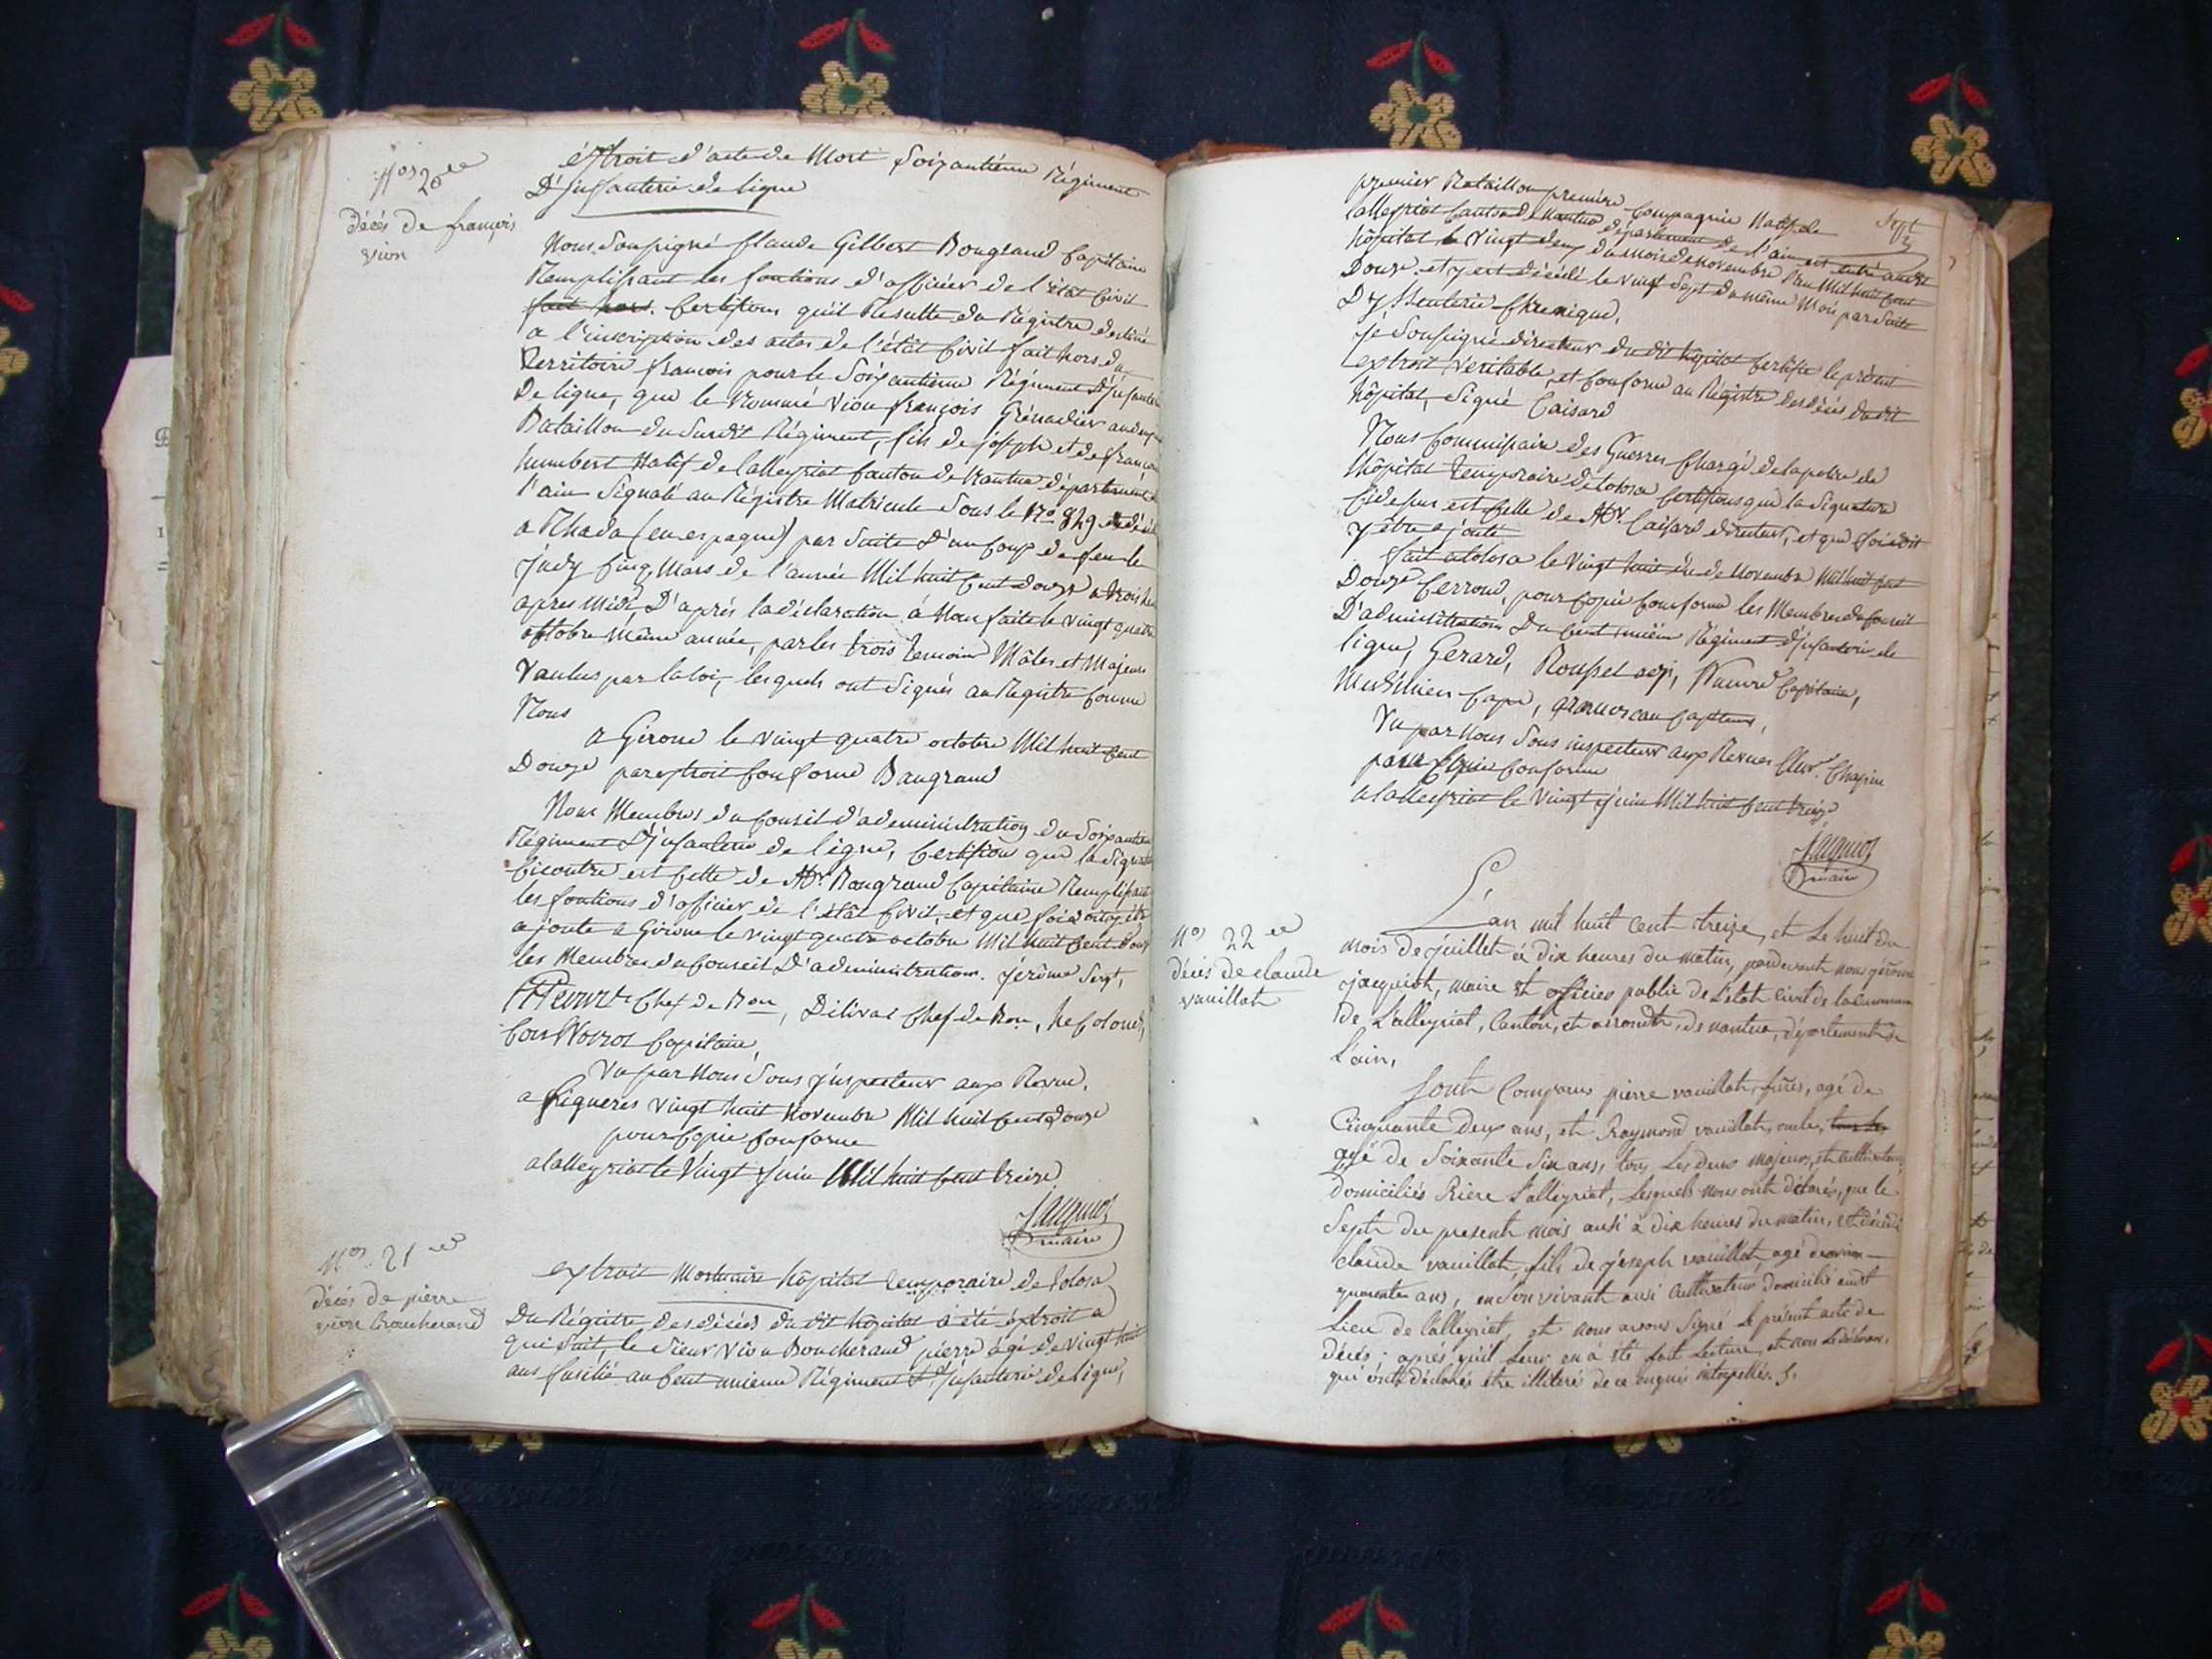 Nos 20ee
décés de françois
vion
éxtrait d'acte de Mort Soixantiéme Régiment
D'jnfanterie de ligne
Nous Soussigné Claude Gilbert Bougrand Capitaine
Remplissant les fonctions d'officier de l'état Civil
Certifions qu'il Resulte du Régistre destiné
a l'inscription des actes de l'état Civil fait hors du
Territoire francois pour le Soixantiéme Régiment D'jnfanterie
De ligne, que le Nommé Vion françois Grénadier au
Bataillon du Susdit Régiment, fils de joseph et de francoise
humbert Natif de lalleyriat Canton de Nantua département de
l'ain Signalé au Régistre Matricule Sous le No 829 est décédé
a (en espagne) par Suite D'un Coup de feu le
jeudy Cinq Mars de l'année Mil huit Cent Douze a trois heures
apres Midi, D'aprés la déclaration á Nous faite le vingt quatre
octobre même année, par les trois Temoins Mâles et Majeurs
Voulus par la loi, lesquels ont Signés au Registre Comme
Nous
a Girone le vingt quatre octobre Mil huit Cent
Douze par extrait Conforme Baugrand
Nous Membres du Conseil d'administration du Soixantiéme
Régiment D'jnfanterie de ligne, Certifions que la Signature
Cicontre est Celle de Mr. Bougrand Capitaine Remplissant
les fontions d'officier de l'état Civil, et que foi doit y être
ajoute a Girone le vingt quatre octobre Mil huit Cent Douze
les Membres du Conseil D'administration. jérôme Sergt,
Chef de Bon, Délivat Chef de Bon, Colonel,
Capitaine,
Vu par Nous Sous jnspecteur aux Revue,
a figueres vingt huit Novembre Mil huit Cent Douze
pour Copie Conforme
a lalleyriat le Vingt Juin Mil huit Cent treize
Jacquiot
maire
Nos. 21ee
décés de pierre
vion Boucherand
extrait Mortuaire hôpital temporaire de Tolosa
Du Régistre des décés du dit hôpital á été éxtrait ce
qui Suit, le Sieur Vion Boucherand pierre âgé de vingt huit
ans fusilié au Cent uniéme Régiment D'jnfanterie de ligne,
premier Bataillon premiére Compagnie Natif de
lalleyriat Canton de Nantua département de l'ain est entré audit
hôpital le Vingt deux du mois de Novembre l'an Mil huit Cent
Douze et y est décédé le vingt Sept du même Mois par Suite
Dyssenterie Chronique,
je Soussigné directeur du dit hôpital Certifie le présent
extrait Veritable, et Conforme au Régistre des décés du dit
hôpital, Signé Caisard
Nous Commissaire des Guerres Chargé de la police de
l'hôpital Temporaire de tolosa Certifions que la Signature
Cidessus est Celle de Mr. Caisard directeur, et que foi doit
y être ajouté
fait a tolosa le Vingt huit du de Novembre Mil huit Cent
Douze Cerroud, pour Copie Conforme les Membres du Conseil
D'administration Du Cent uniéme Régiment d'jnfanterie de
ligne, Gerard, Roussel Capitaine,
Capitaine,
Vu par Nous Sous inspecteur aux Revues Chapin
pour Copie Conforme
a lalleyriat le Vingt juin Mil huit Cent treize
Jacquiot
maire
Nos 22ee
décés de claude
vauillat
L'an mil huit cent treize, et le huit du
mois de juillet á dix heures du matin, pardevant nous jérôme
jacquiot, maire et officier public de L'état civil de la Commune
de Lalleyriat, Canton, et arrondt, de nantua, département de
L'ain,
Sont Comparus pierre vauillat, frères, agé de
Cinquante deux ans, et Raymond vauillat, oncle,
agé de Soixante Six ans, tous Les deux majeurs, et cultivateurs
domiciliés Riere Lalleyriat, Lesquels nous ont déclarés, que le
Sept du present mois ausi à dix heures du matin, est décédé
claude vauillat, fils de jéseph vauillat, agé denviron
quarante ans, en Son vivant ausi Cultivateur domicilié audt
Lieu de Lalleyriat, et nous avons Signé le présent acte de
décés aprés qu'il Leur en á été fait Lecture, et non Les déclarants,
qui ont déclarés etre illitéré de ce enquis interpellés. J.